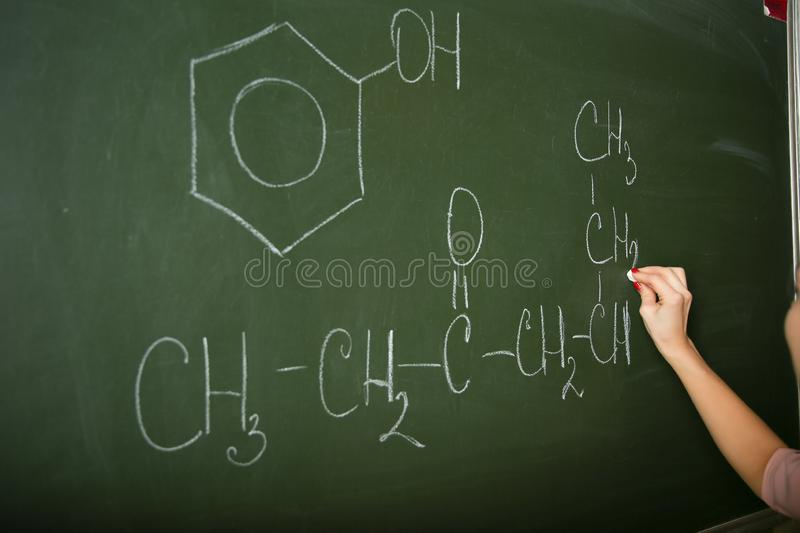 OH
CH3
CH2
O
CH3 - CH2 - C - CH2 - CH
dreamstime